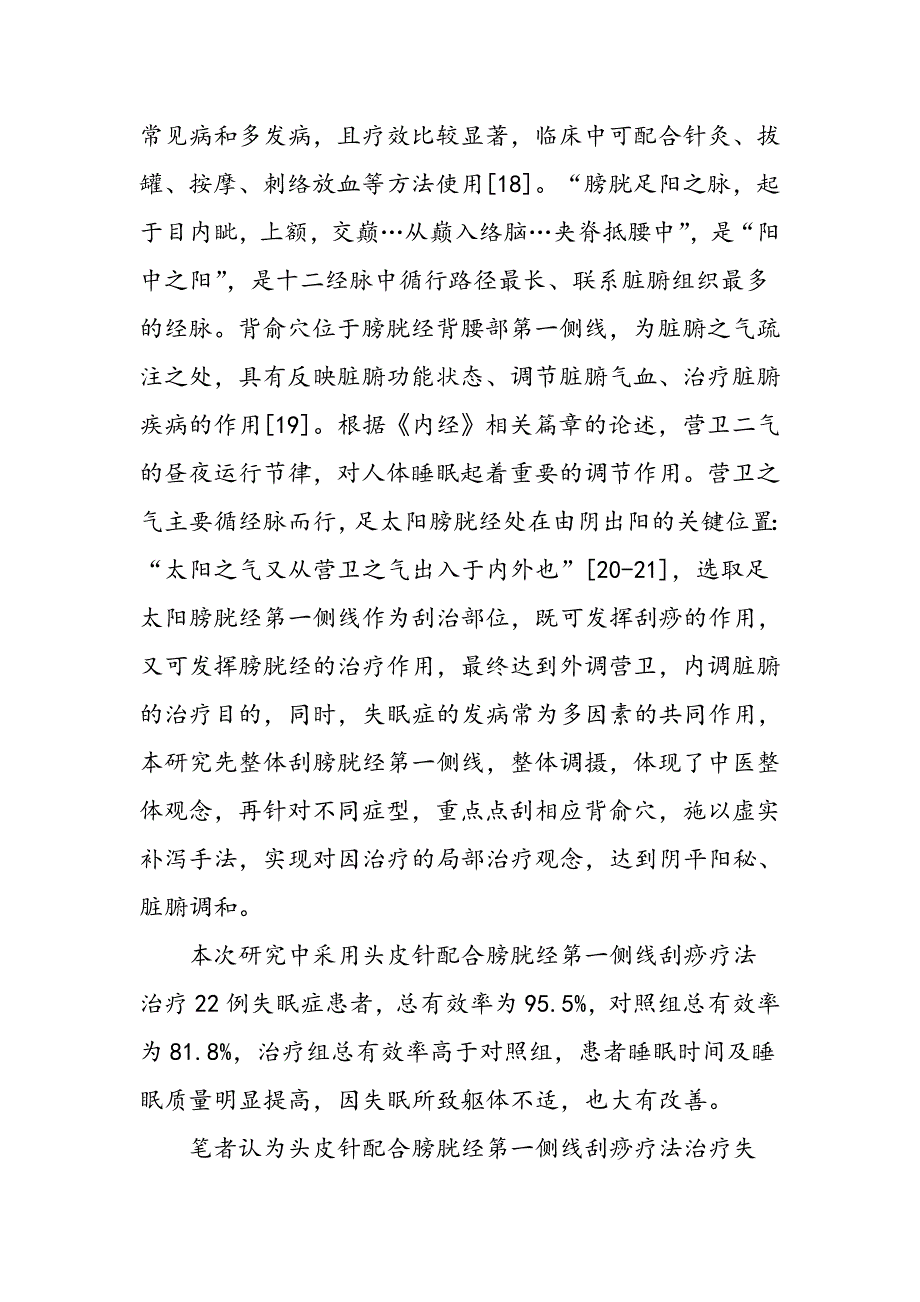 常见病和多发病，且疗效比较显著，临床中可配合针灸、拔
罐、按摩、刺络放血等方法使用[18]。“膀胱足阳之脉，起
于目内眦，上额，交巅…从巅入络脑…夹脊抵腰中”，是“阳
中之阳”，是十二经脉中循行路径最长、联系脏腑组织最多
的经脉。背俞穴位于膀胱经背腰部第一侧线，为脏腑之气疏
注之处，具有反映脏腑功能状态、调节脏腑气血、治疗脏腑
疾病的作用[19]。根据《内经》相关篇章的论述，营卫二气
的昼夜运行节律，对人体睡眠起着重要的调节作用。营卫之
气主要循经脉而行，足太阳膀胱经处在由阴出阳的关键位置：
“太阳之气又从营卫之气出入于内外也”[20-21]，选取足
太阳膀胱经第一侧线作为刮治部位，既可发挥刮痧的作用，
又可发挥膀胱经的治疗作用，最终达到外调营卫，内调脏腑
的治疗目的，同时，失眠症的发病常为多因素的共同作用，
本研究先整体刮膀胱经第一侧线，整体调摄，体现了中医整
体观念，再针对不同症型，重点点刮相应背俞穴，施以虚实
补泻手法，实现对因治疗的局部治疗观念，达到阴平阳秘、
脏腑调和。
本次研究中采用头皮针配合膀胱经第一侧线刮痧疗法
治疗22例失眠症患者，总有效率为95.5%，对照组总有效率
为81.8%，治疗组总有效率高于对照组，患者睡眠时间及睡
眠质量明显提高，因失眠所致躯体不适，也大有改善。
笔者认为头皮针配合膀胱经第一侧线刮痧疗法治疗失